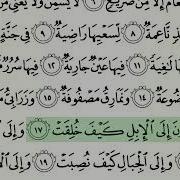 عَامٌ إِلَّا مِن ضَرِيعٍ ٦ لَّا يُسْمِنُ وَلَا يُغْنِي
ذٍ نَّاعِمَةٌ ٨ لِّسَعْيِهَا رَاضِيَةٌ ٩ فِي جَنَّةٍ
لَٰغِيَةً ١١ فِيهَا عَيْنٌ جَارِيَةٌ ١٢ فِيهَا سُرُرٌ
ضُوعَةٌ ١٤ وَنَمَارِقُ مَصْفُوفَةٌ ١٥ وَزَرَابِيُّ
ونَ إِلَى ٱلْإِبِلِ كَيْفَ خُلِقَتْ ١٧ وَإِلَى
وَإِلَى ٱلْجِبَالِ كَيْفَ نُصِبَتْ ١٩ وَإِلَى